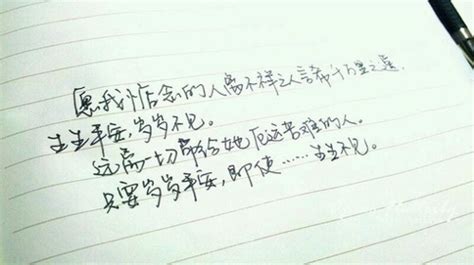 愿我惦念的人离不祥之人言希千百里之遥，
生生平安，岁岁不见。
远离一切带给她厄运苦难的人。
只要岁岁平安，即使……生生不见。